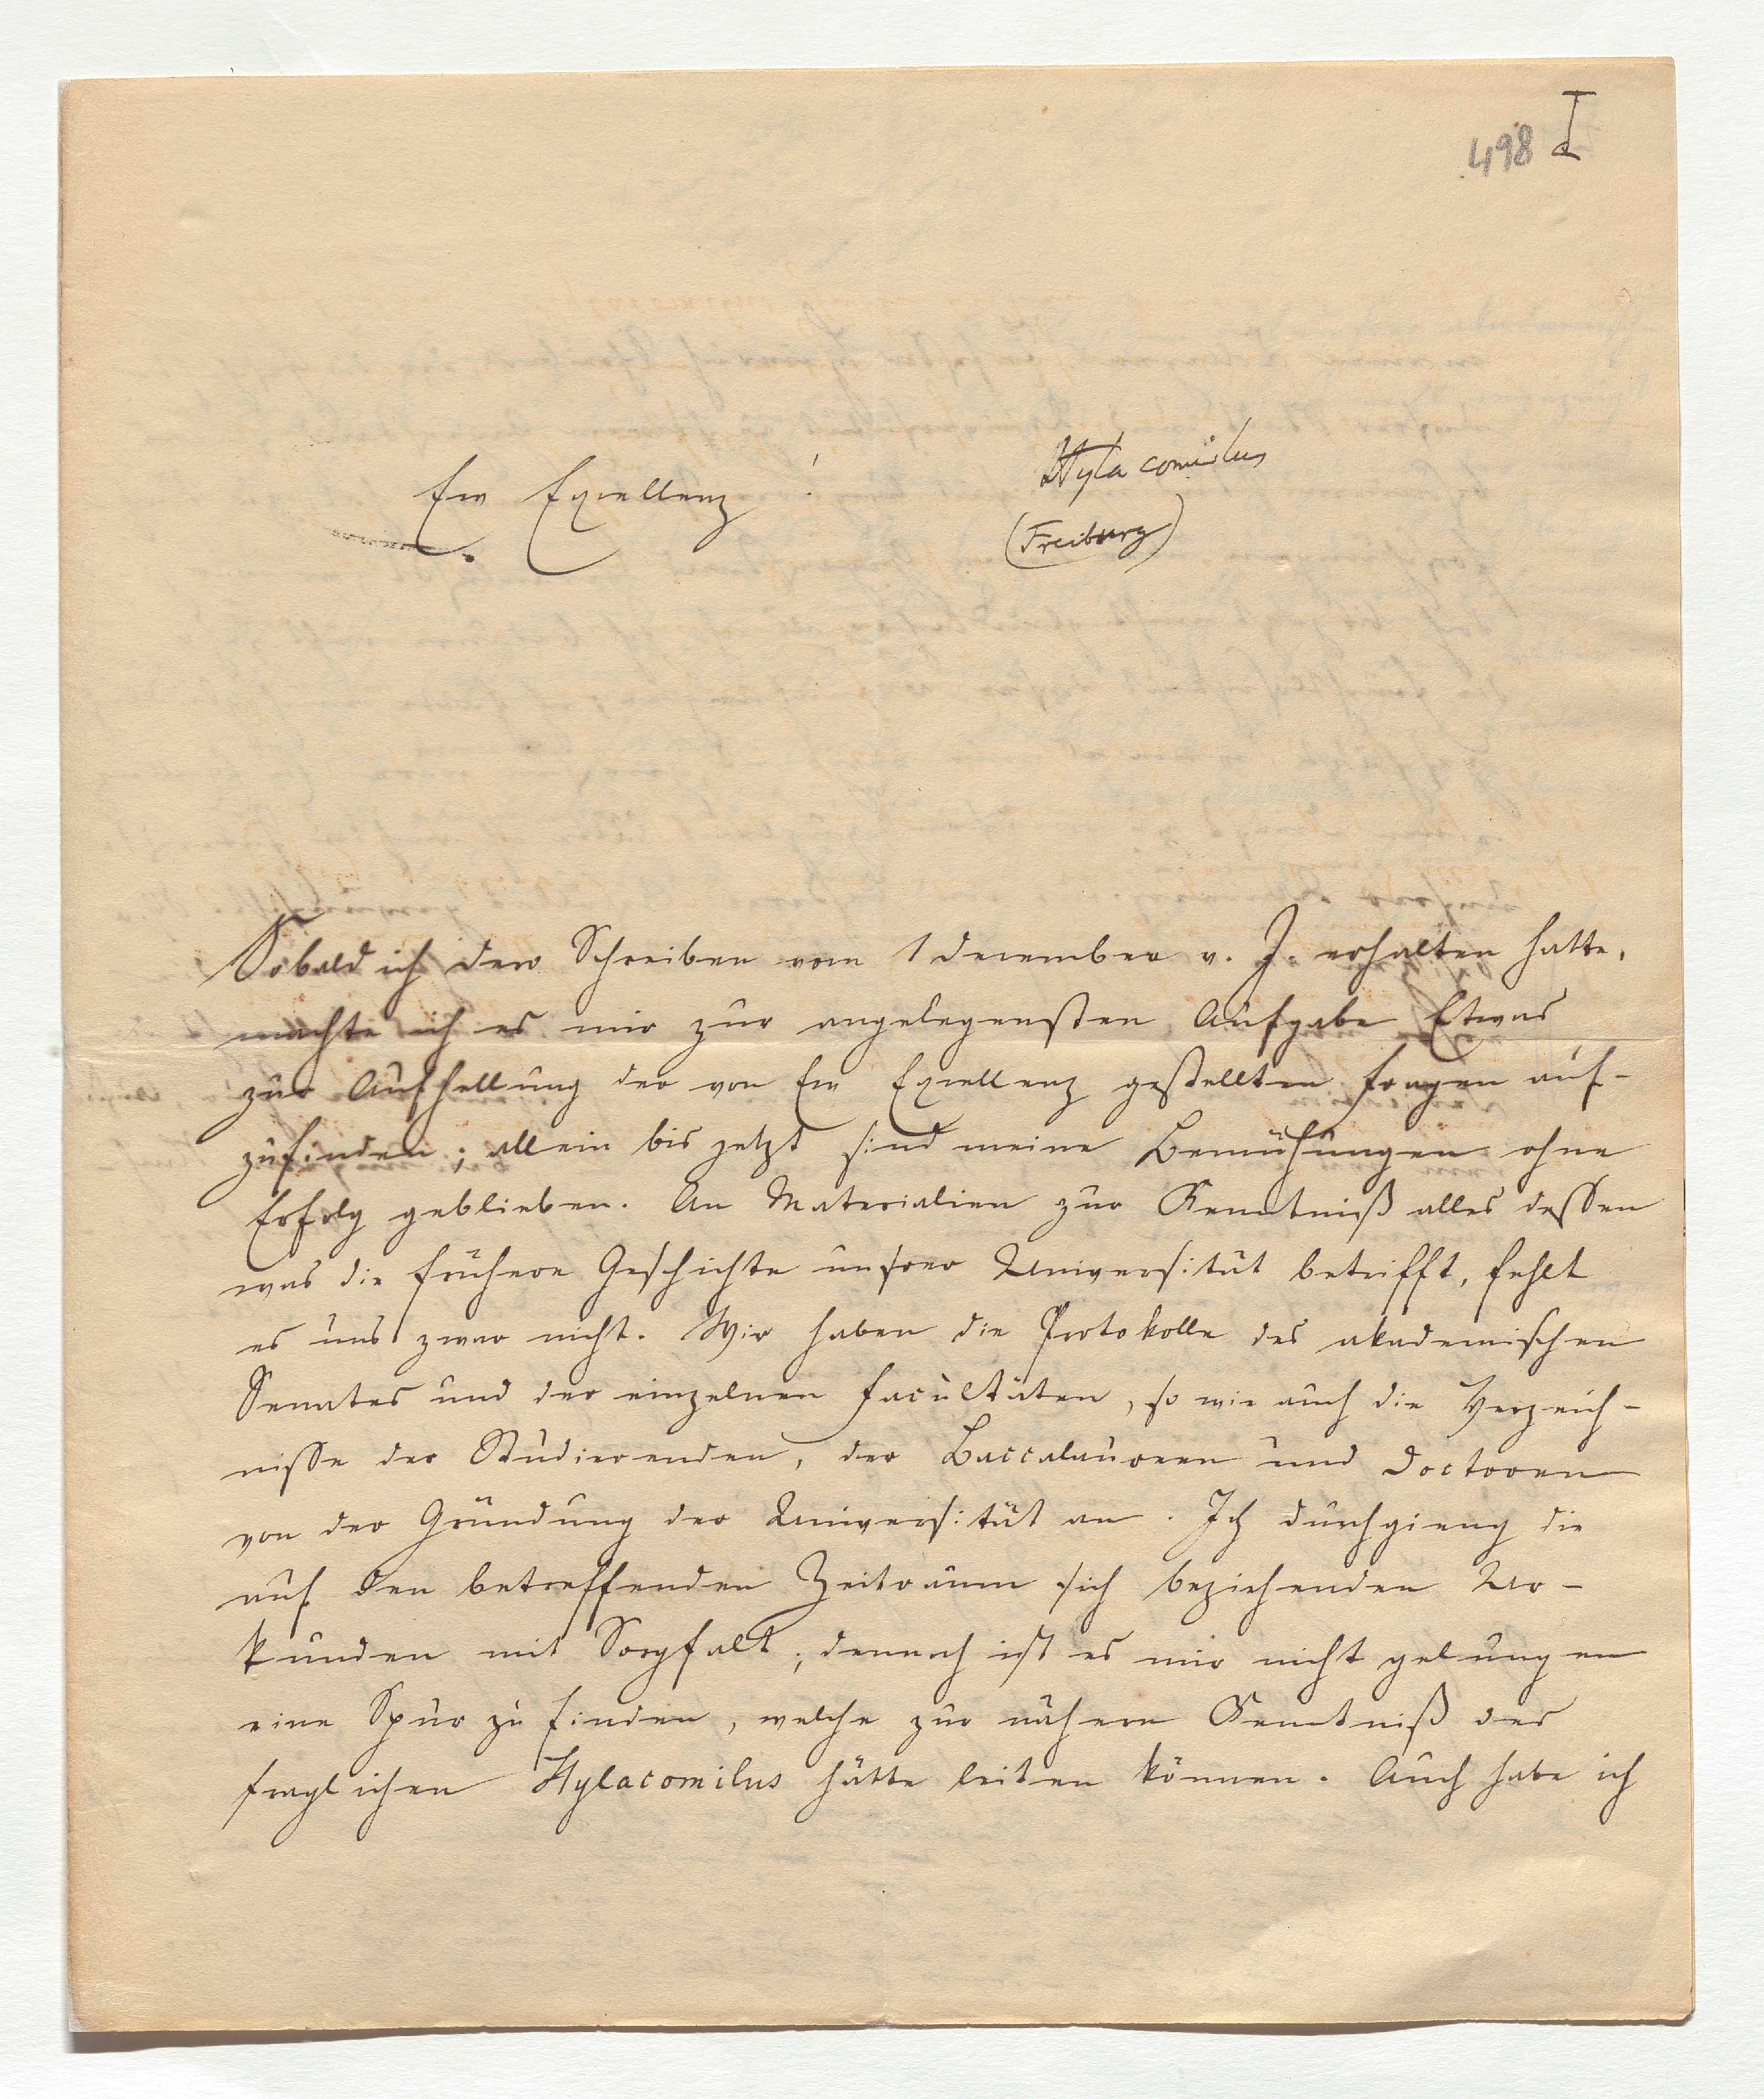 498 I
Hylacomilus
Ew Excellenz !
(Freiburg)
Sobald ich dero Schreiben vom 1 December v. J. erhalten hatte,
machte ich es mir zur angelegensten Aufgabe Etwas
zur Aufhellung der von Ew Excellenz gestellten Fragen auf-
zufinden; allein bis jetzt sind meine Bemühungen ohne
Erfolg geblieben. An Materialien zur Kenntniß alles dessen
was die frühere Geschichte unsrer Universität betrifft, fehlt
es uns zwar nicht. Wir haben die Protokolle des akademischen
Senates und der einzelnen Facultäten, so wie auch die Verzeich-
nisse der Studierenden, der Baccalauren und Doctoren
von der Gründung der Universität an. Ich durchgieng die
auf den betreffenden Zeitraum sich beziehenden Ur-
kunden mit Sorgfalt; dennoch ist es mir nicht gelungen
eine Spur zu finden, welche zur nähern Kenntniß des
fraglichen Hylacomilus hätte leiten können. Auch habe ich